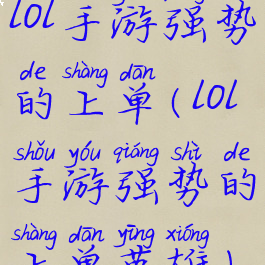 lol手游强势
de shàng dān
的上单(lol
shǒu yóu qiáng shì de
手游强势的
shàng dān yīng xióng
上单英雄)